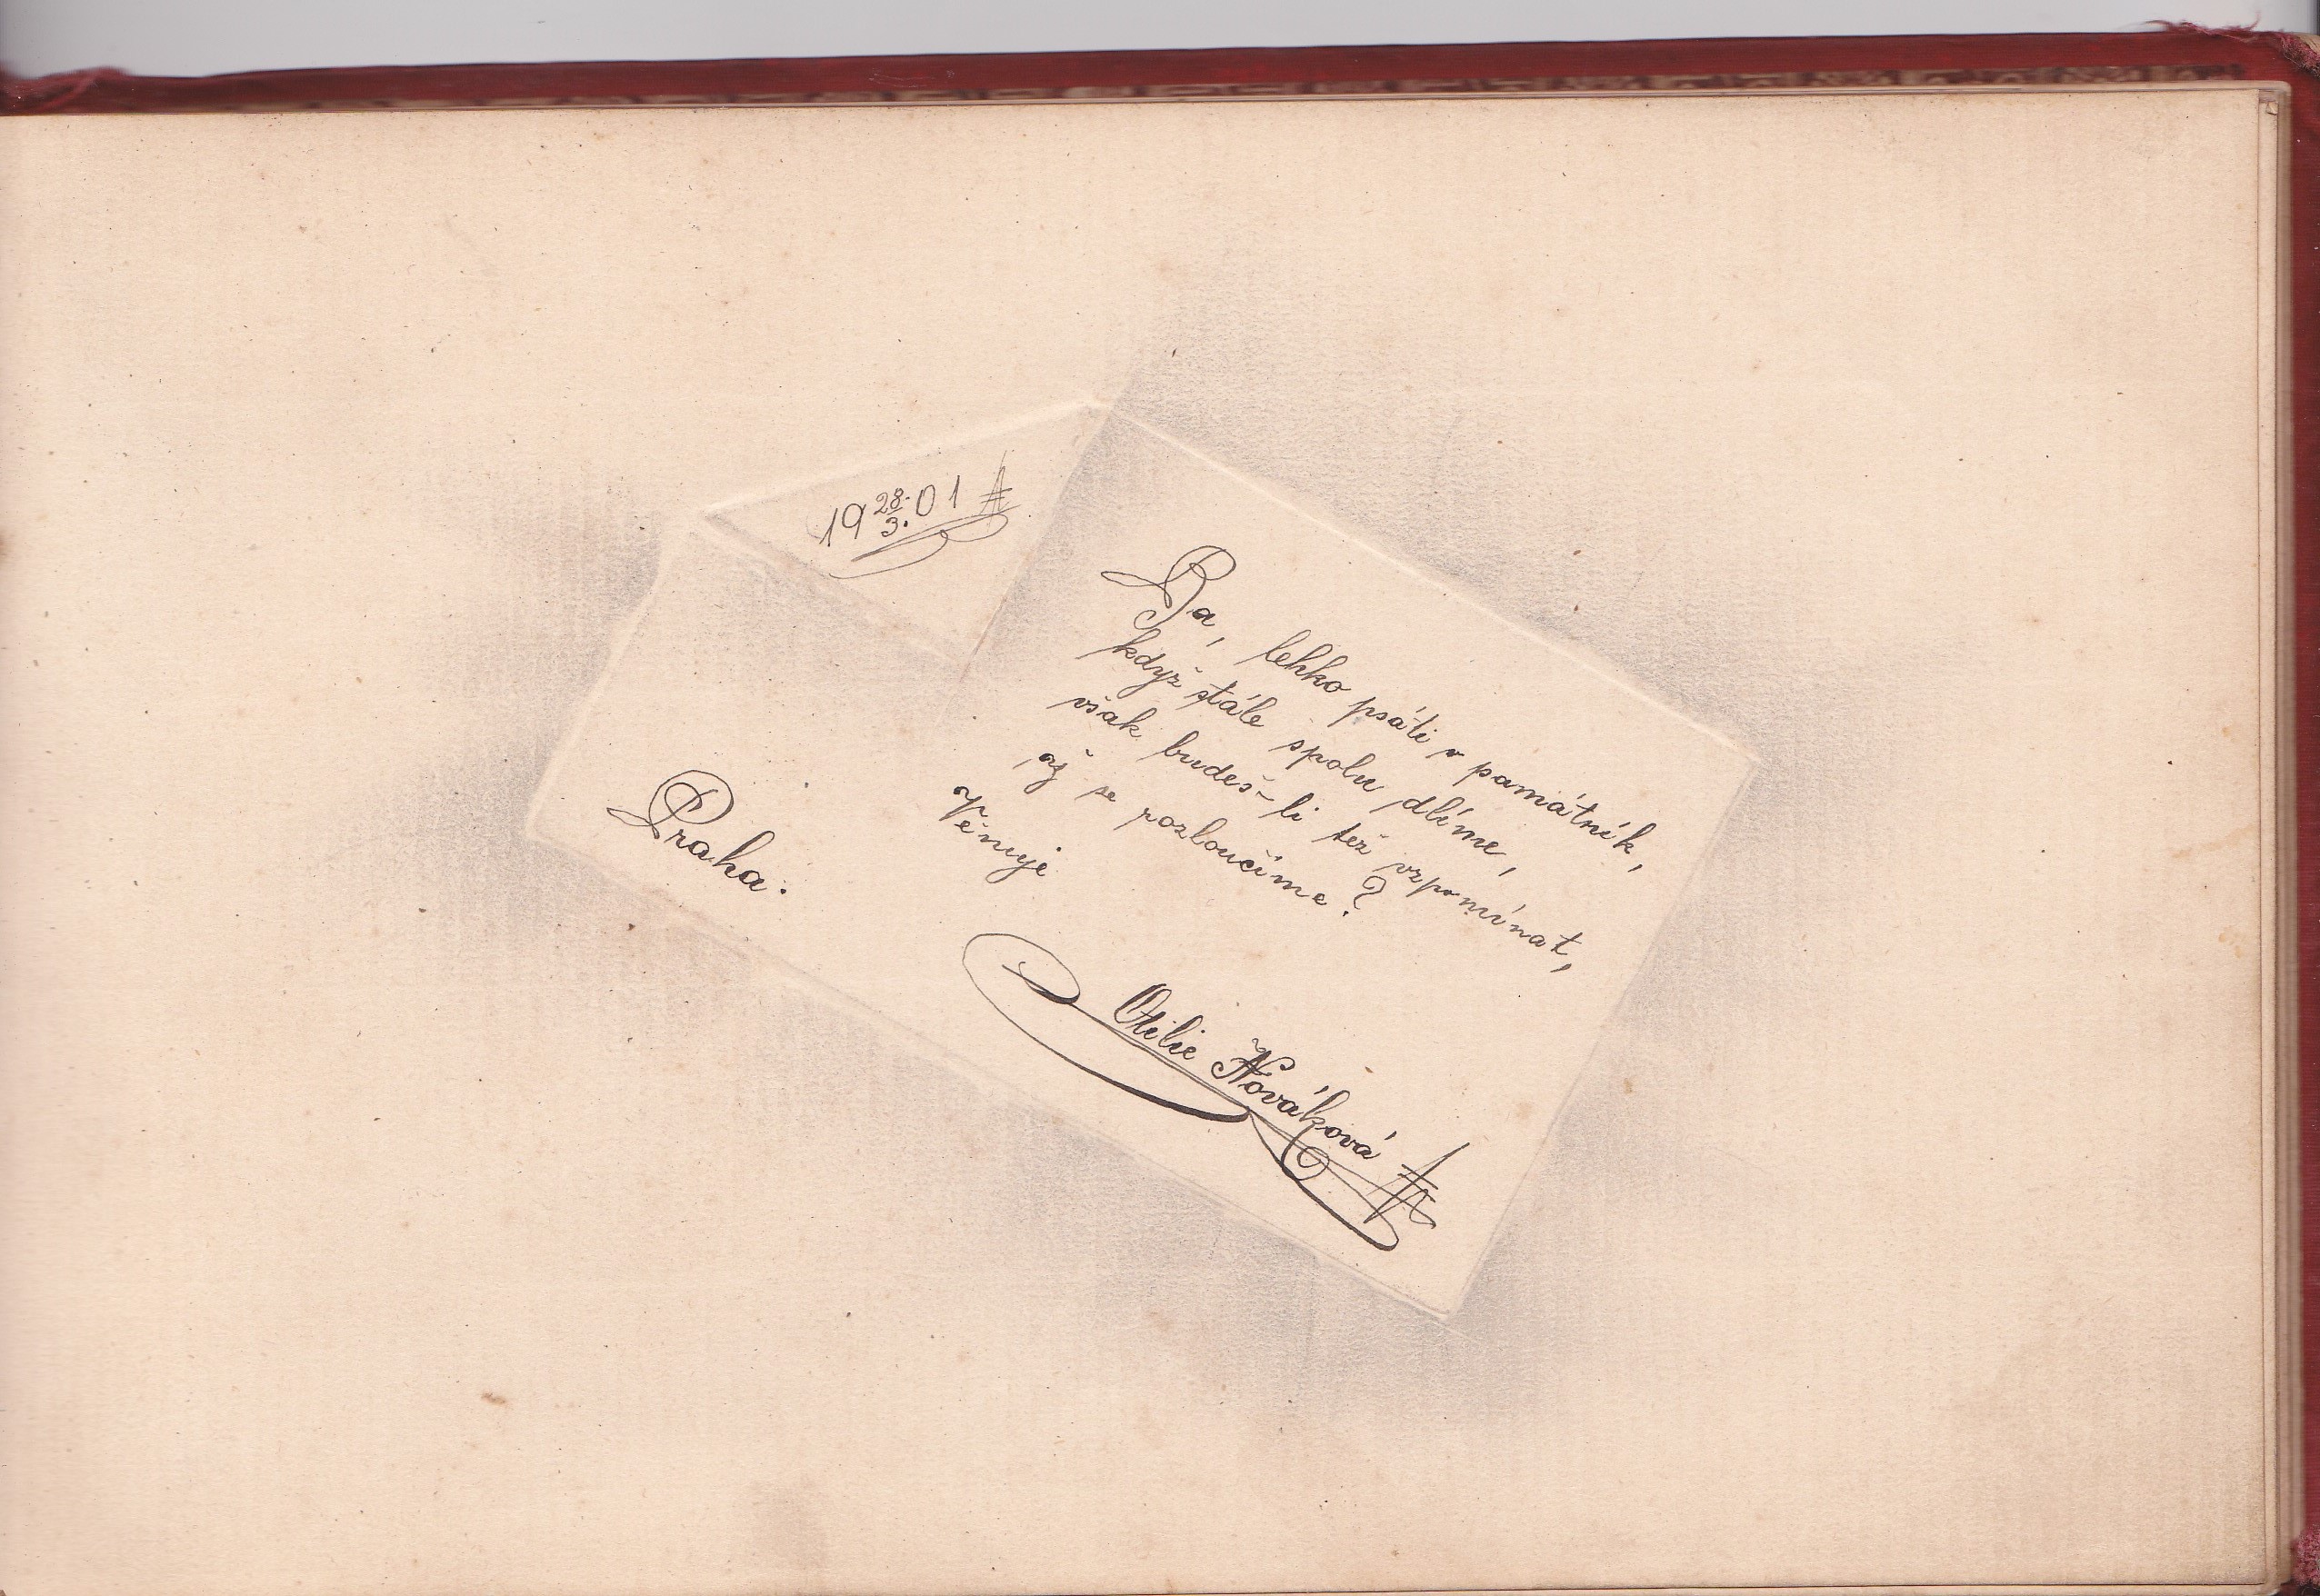 19 28./3. 01
Ba, lehko psáti v památník,
když stále spolu dlíme,
však budeš-li též vzpomínat,
až se rozloučíme?
Věnuje
Otilie Nováková
Praha.